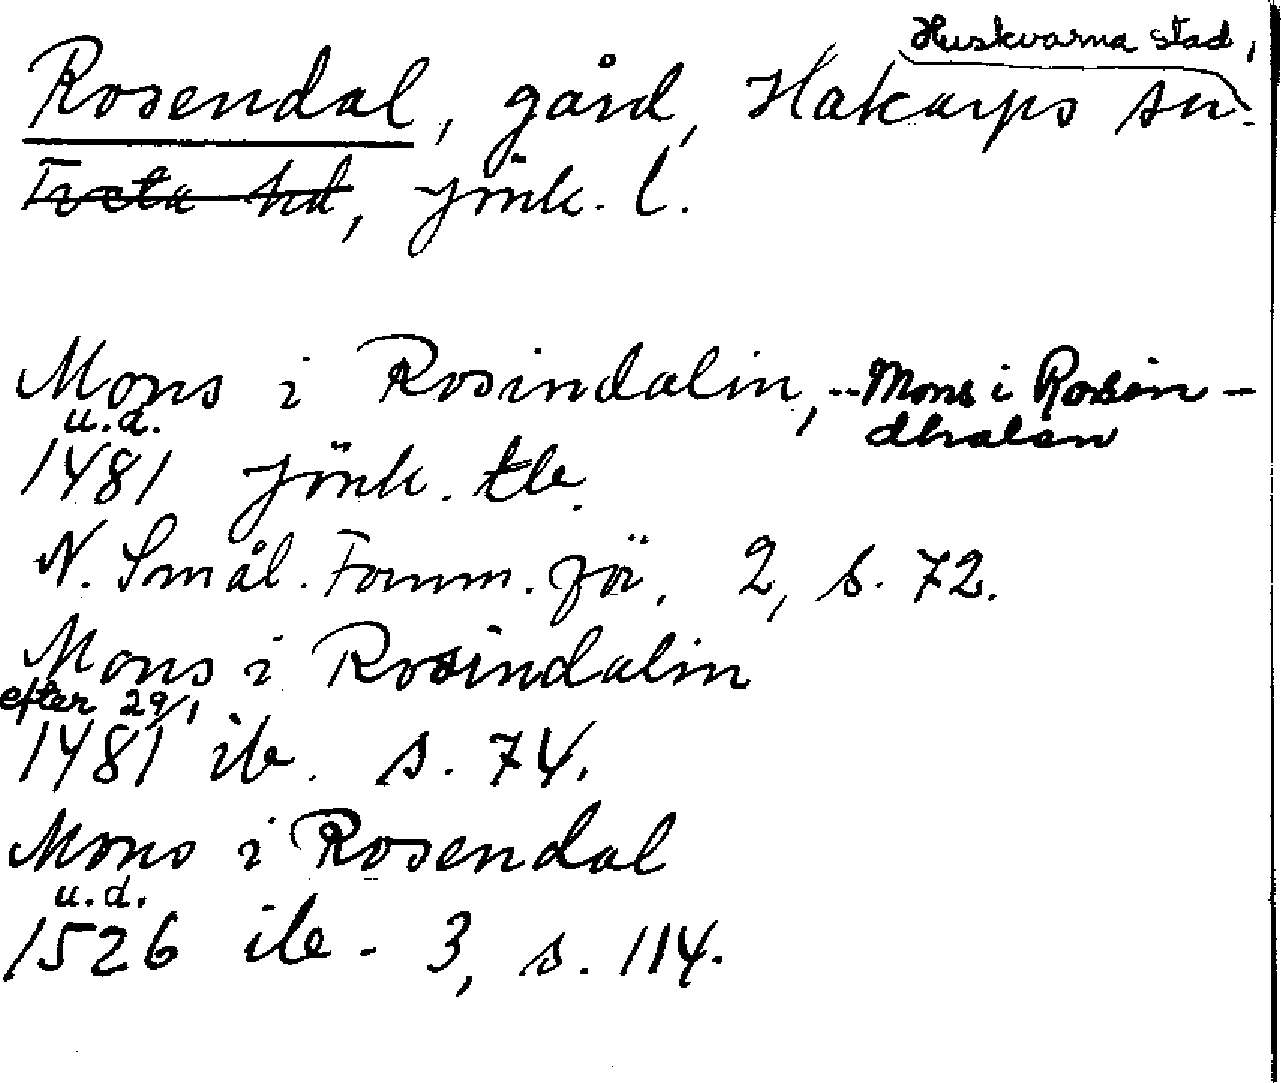 Huskvarna stad,
Rosendal, gård, Hakarps sn.
Tveta hd, Jönk. l.
Mons i Rosindalin, -- Mons i Rosen-
dhalen
u.d.
1481 Jönk. tb.
N. Smål. Fornm. för. 2, s. 72.
Mons i Rosindalin
efter 29/1
1481 ib. s. 74.
Mons i Rosendal
u.d.
1526 ib. 3, s. 114.